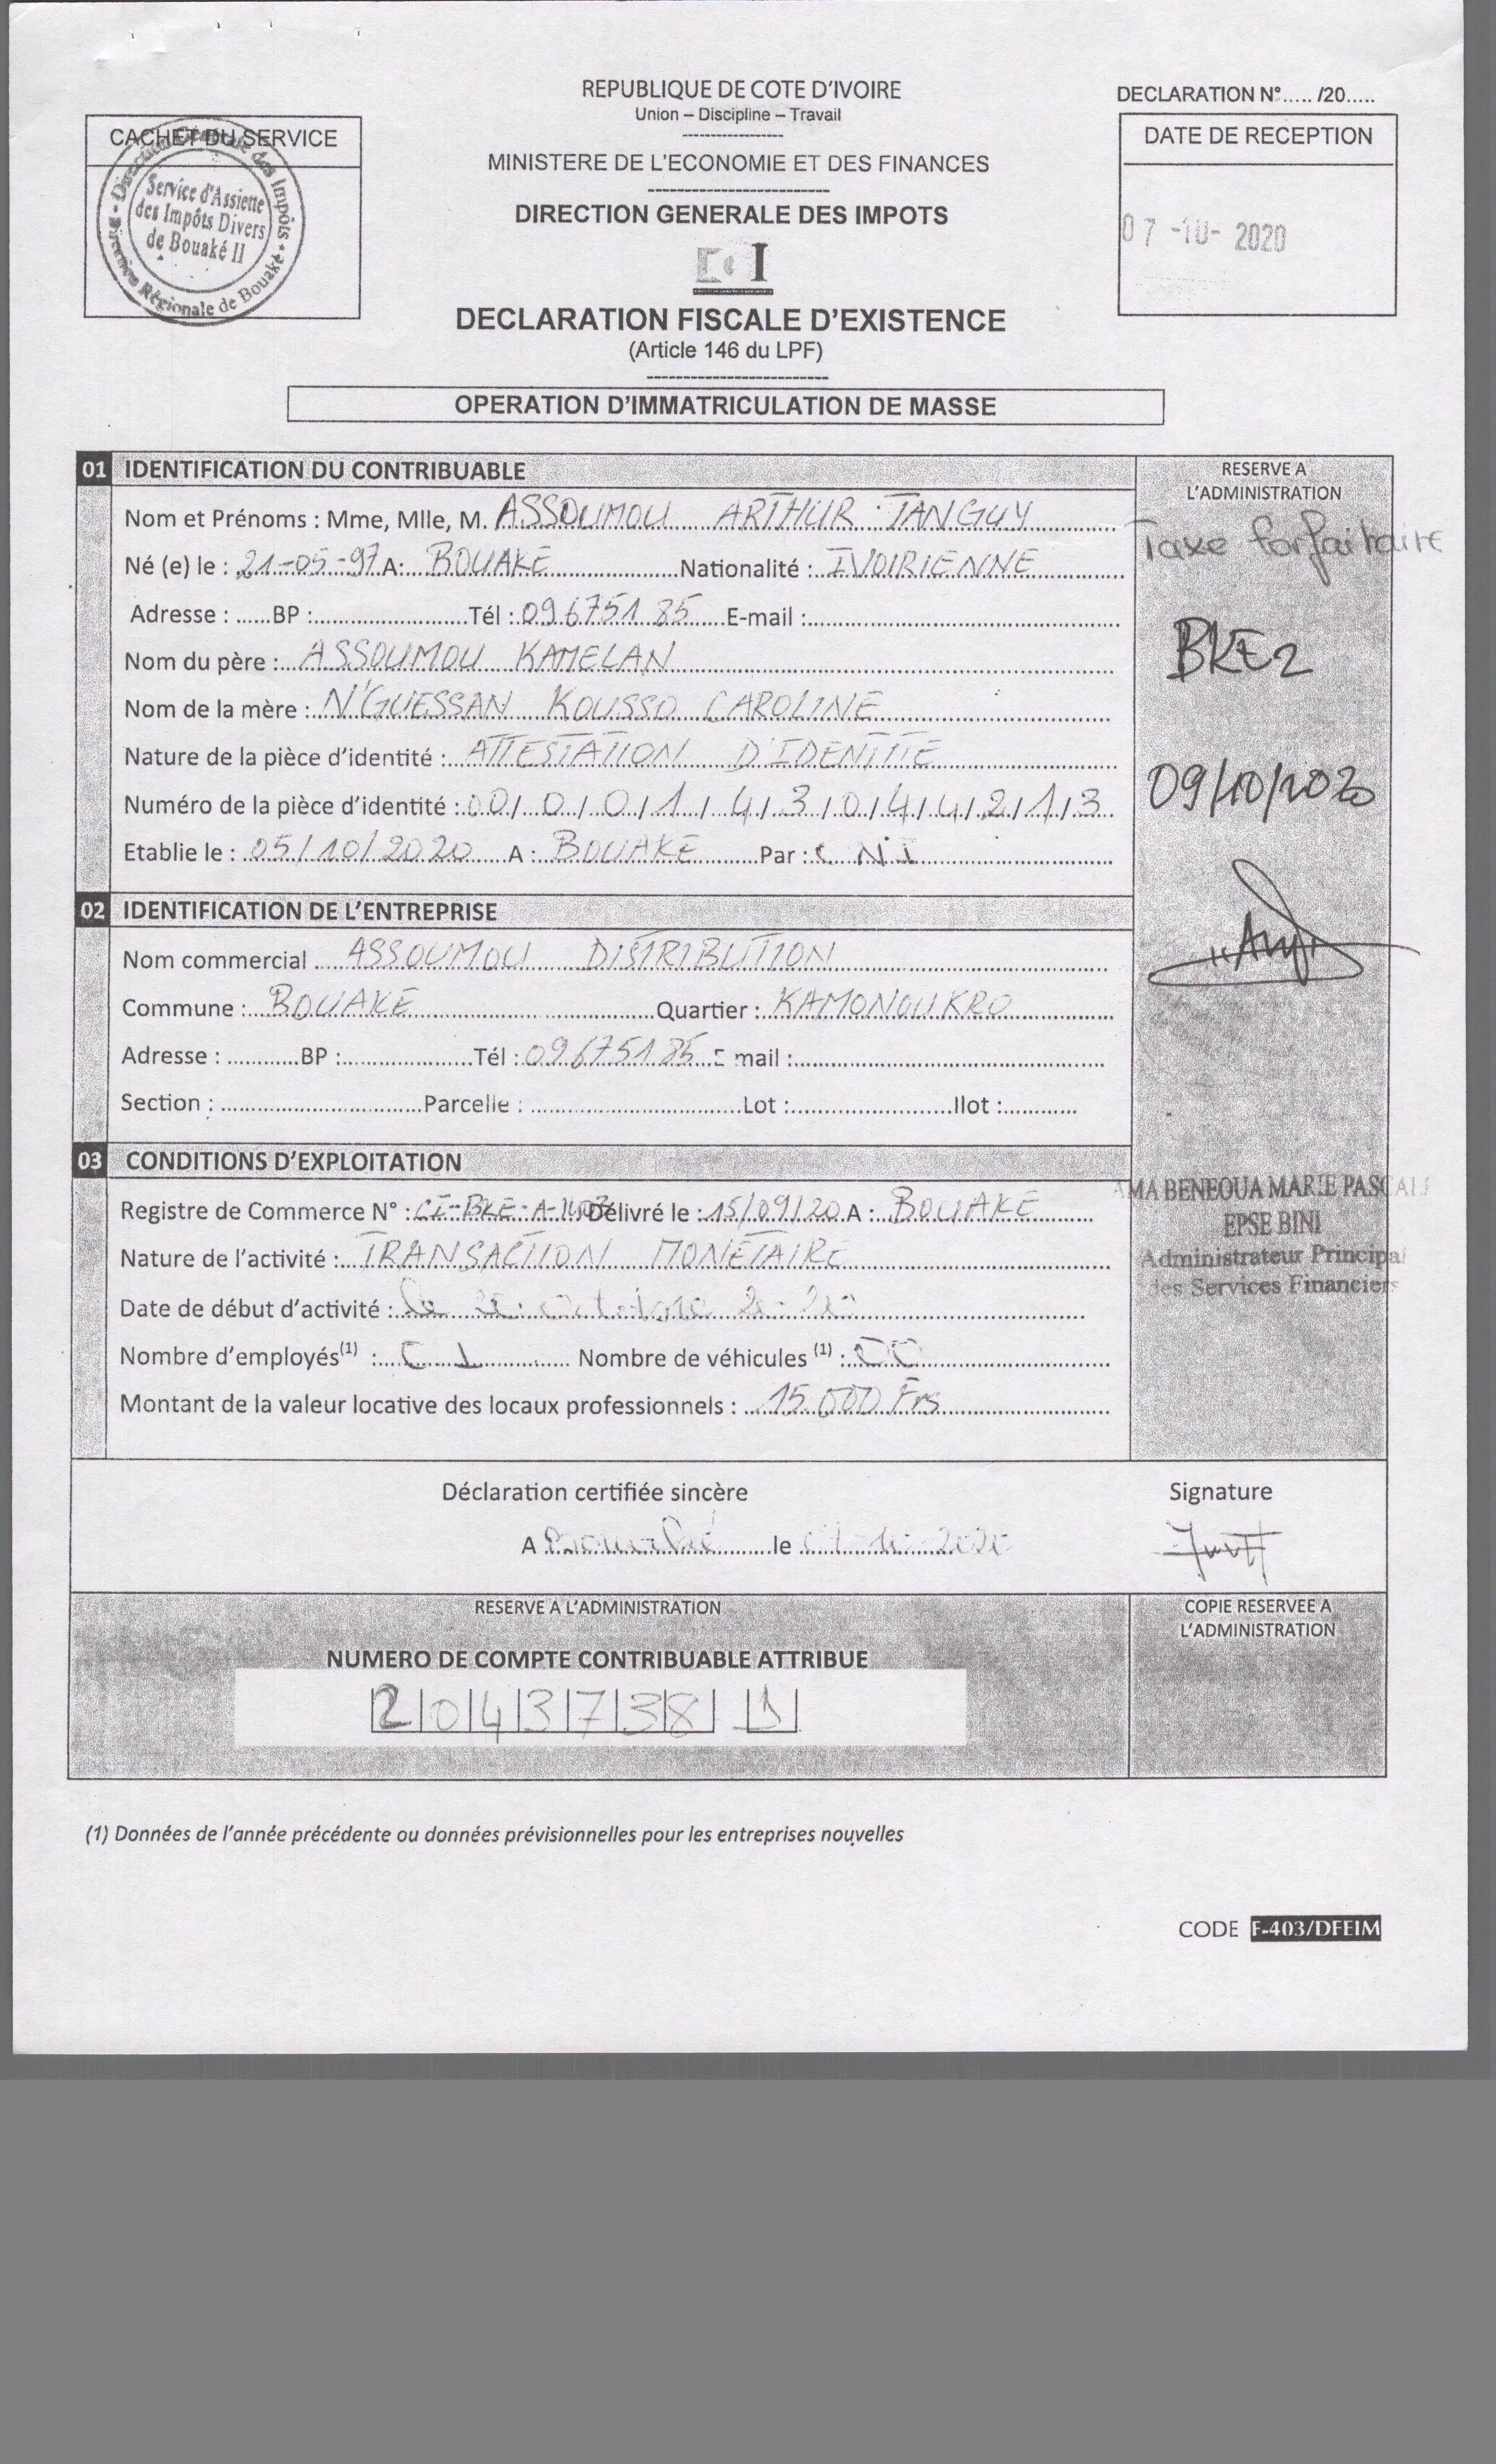 REPUBLIQUE DE COTE D'IVOIRE
Union – Discipline – Travail
-----------------
MINISTERE DE L'ECONOMIE ET DES FINANCES
-------------------------
DIRECTION GENERALE DES IMPOTS
DECLARATION N°..... /20.....
CACHET DU SERVICE
Direction Générale des Impôts
Service d'Assiette
des Impôts Divers
de Bouaké II
Direction Régionale de Bouaké
DATE DE RECEPTION
07 -10- 2020
DECLARATION FISCALE D'EXISTENCE
(Article 146 du LPF)
-------------------------
OPERATION D'IMMATRICULATION DE MASSE
01 IDENTIFICATION DU CONTRIBUABLE
Nom et Prénoms : Mme, Mlle, M. ASSOUMOU ARTHUR TANGUY
Né (e) le : 21-05-97 A: BOUAKE Nationalité : IVOIRIENNE
Adresse : ......BP :........................Tél : 09675185 E-mail :
Nom du père : ASSOUMOU KAMELAN
Nom de la mère : N'GUESSAN KOUSSO CAROLINE
Nature de la pièce d'identité : ATTESTATION D'IDENTITE
Numéro de la pièce d'identité : 00/0/0/1/4/3/0/4/4/2/1/3
Etablie le : 05/10/2020 A : BOUAKE Par : CNI
RESERVE A
L'ADMINISTRATION
Taxe forfaitaire
BKE2
09/10/2020
AMA BENEOUA MARIE PASCALE
EPSE BINI
Administrateur Principal
des Services Financiers
02 IDENTIFICATION DE L'ENTREPRISE
Nom commercial ASSOUMOU DISTRIBUTION
Commune : BOUAKE Quartier : KAMONOUKRO
Adresse : ............BP :....................Tél : 09675185 E mail :
Section : ..............................Parcelle : ..............................Lot :.......................Ilot :...........
03 CONDITIONS D'EXPLOITATION
Registre de Commerce N° : CI-BKE-A- Délivré le : 15/09/20 A : BOUAKE
Nature de l'activité : TRANSACTION MONETAIRE
Date de début d'activité : octobre
Nombre d'employés(1) : 01 Nombre de véhicules (1) : 00
Montant de la valeur locative des locaux professionnels : 15.000 Frs
Déclaration certifiée sincère
Signature
A Bouaké le 07-10-2020
RESERVE A L'ADMINISTRATION
NUMERO DE COMPTE CONTRIBUABLE ATTRIBUE
2|0|4|3|7|3|8| |1|
COPIE RESERVEE A
L'ADMINISTRATION
(1) Données de l'année précédente ou données prévisionnelles pour les entreprises nouvelles
CODE F-403/DFEIM